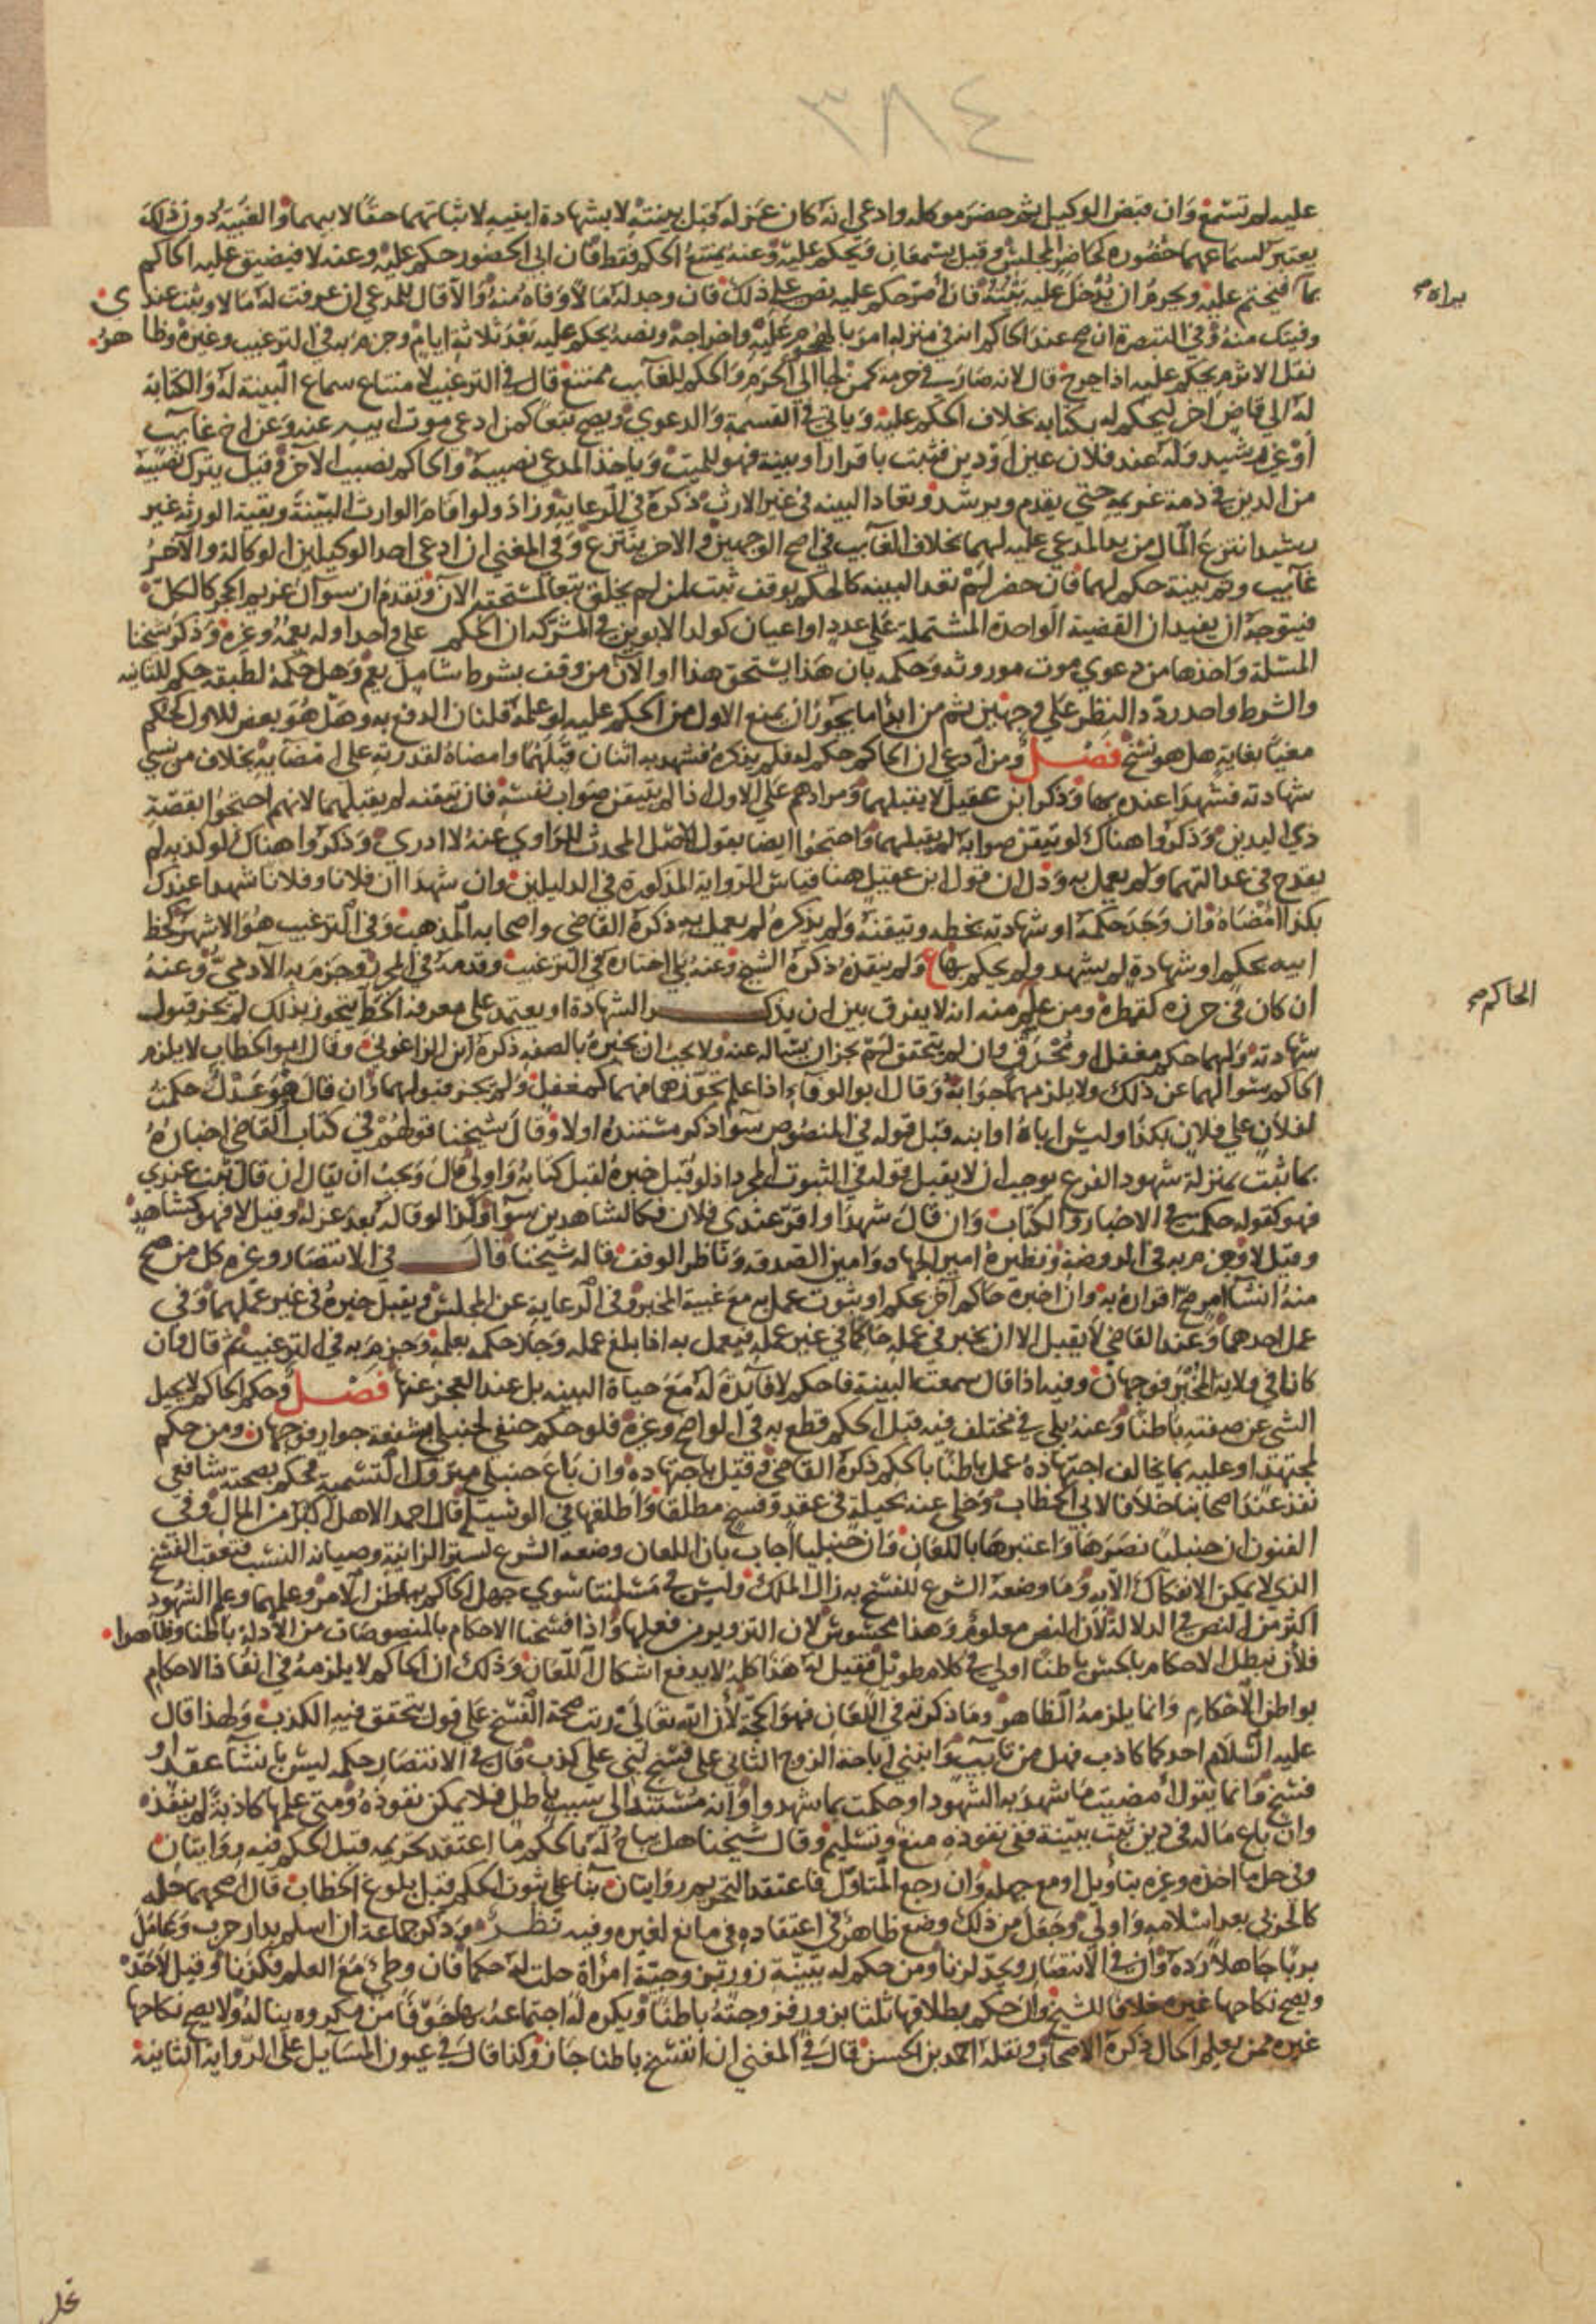 ٣٨٤
عليه لم تسمع وان قبض الوكيل ثم حضر موكله وادعى انه كان عزله قبل بينته لا بشهادة ابنيه لا ثباتهما حقا لابيهما والغيبة دون ذلك
يعتبر لسماعهما حضوره كحاضر المجلس وقيل يسمعان ويحكم عليه وعنه يمتنع الحكم فقط فان ابى الحضور حكم عليه وعنه لا فيضيق عليه الحاكم
بما فيختم عليه ويحرم ان يدخل عليه بيته فان أصر حكم عليه نص على ذلك فان وجد له مالا وفاه منه والا قال للمدعي ان عرفت له مالا وثبت عندي
براه صح
وفيتك منه وفي التبصرة ان صح عند الحاكم انه في منزله امر بالهجوم عليه واخراجه ونصه يحكم عليه بعد ثلاثة ايام وجزم به في الترغيب وغيره وظاهر
نقل الاثرم يحكم عليه اذا خرج قال لانه صار في حرمة كمن لجا الى الحرم والحكم للغايب ممتنع قال في الترغيب لامتناع سماع البينة له والكتابة
له الى قاض اخر ليحكم له بكتابه بخلاف الحكم عليه وياتي في القسمة والدعوي ويصح تبعا كمن ادعى موت ابيه عنه وعن اخ غايب
أو غير رشيد وله عند فلان عين او دين فثبت باقرار او بينة فهو للميت وياخذ المدعي نصيبه والحاكم نصيب الاخر وقيل يترك نصيبه
من الدين في ذمة غريمه حتى يقدم ويرشد وتعاد البينه في غير الارث ذكره في الرعاية وزاد ولو اقام الوارث البينة وبقية الورثه غير
رشيد انتزع المال من يد المدعي عليه لهما بخلاف الغايب في اصح الوجهين والاخر ينتزع وفي المغني ان ادعى احد الوكيلين الوكالة والاخر
غايب وثم بينة حكم لهما فان حضر لم تعد البينه كالحكم بوقف ثبت لمن لم يخلق تبعا لمستحقه الآن وتقدم ان سؤال غريم الحجر كالكل
فيتوجه ان يفيد ان القضية الواحدة المشتملة على عدد او اعيان كولد الابوين في المشركه ان الحكم على واحد او له يعمه وغيره وذكر شيخنا
المسئلة واخذها من دعوي موت موروثه وحكمه بان هذا يستحق هذا او الآن من وقف بشرط شامل يعم وهل حكمه لطبقه حكم للثانيه
والشرط واحد ردد النظر على وجهين ثم من ابدا ما يجوز ان يمنع الاول من الحكم عليه لو علمه فللثان الدفع به وهل هو نقض للاول كحكم
مغيا بغاية هل هو نسخ فصل ومن ادعى ان الحاكم حكم له فلم يذكره فشهد به اثنان قبلهما وامضاه لقدرته على امضايه بخلاف من نسي
شهادته فشهدا عنده بها وذكر ابن عقيل لا يقبلهما ومرادهم على الاول اذا لم يتيقن صواب نفسه فان تيقنه لم يقبلهما لانهم احتجوا بقصة
ذي اليدين وذكروا هناك لو تيقن صوابه لم يقبلهما واحتجوا ايضا بقول الاصل المحدث للراوي عنه لا ادري وذكروا هناك لو كذبه لم
يقدح في عدالتهما ولم يعمل به ودل ان قول ابن عقيل هنا قياس الرواية المذكورة في الدليلين وان شهدا ان فلانا وفلانا شهدا عندك
بكذا امضاه وان وجد حكمه او شهادته بخطه وتيقنه ولم يذكره لم يعمل به ذكره القاضي واصحابه المذهب وفي الترغيب هو الاشهر كخط
ابيه بحكم او شهادة لم يشهد ولم يحكم بها ع ولم ينفذه ذكره الشيخ وعنه بلى اختاره في الترغيب وقدمه في المحرر وجزم به الآدمي وعنه
ان كان في حرزه كقمطره ومن علم منه انه لا يفرق بين ان يذكر الشهادة او يعتمد على معرفة الخط يتجوز بذلك لم يجز قبول
الحاكم صح
شهادته ولهما حكم مغفل او مخرف وان لم يتحقق لم يجز ان يساله عنه ولا يجب ان يخبره بالصفه ذكره ابن الزاغوني وقال ابو الخطاب لا يلزم
الحاكم سؤالهما عن ذلك ولا يلزمهما جوابه وقال ابو الوفاء اذا علم تجوزهما فهما كمغفل ولم يجز قبولهما وان قال هو عدل حكمت
لفلان على فلان بكذا وليس اباه او ابنه قبل قوله في المنصوص سوا ذكر مستنده اولا وقال شيخنا قولهم في كتاب القاضي اخباره
بما ثبت بمنزلة شهود الفرع يوجب ان لا يقبل قوله في الثبوت المجرد اذ لو قبل خبره لقبل كتابه واولى قال ويجب ان يقال ان قال ثبت عندي
فهو كقوله حكمت في الاخبار والكتاب وان قال شهدا او اقر عندي فلان فكالشاهدين سوا وكذا لو قاله بعد عزله وقيل لا فهو كشاهد
وقيل لا وجزم به في الروضة ونظيره امير الجهاد وامين الصدقه وناظر الوقف قاله شيخنا قال في الانتصار وغيره كل من صح
منه انشا امر صح اقراره به وان اخبره حاكم آخر بحكم او بثوت عمل به مع غيبة المخبر وفي الرعاية عن المجلس ويقبل خبره في غير عملهما وفي
عمل احدهما وعند القاضي لا يقبل الا ان يخبر في عمله حاكما في غير عمله فيعمل به اذا بلغ عمله وجاز حكمه بعلمه وجزم به في الترغيب ثم قال وان
كانا في ولاية المخبر فوجهان وفيه اذا قال سمعت البينة فاحكم لا فايدة له مع حياة البينه بل عند العجز عنها فصل وحكم الحاكم لا يحيل
الشي عن صفته باطنا وعنه بلى في مختلف فيه قبل الحكم قطع به في الواضح وغيره فلو حكم حنفي لحنبلي بشفعة جوار فوجهان ومن حكم
لمجتهد او عليه بما يخالف اجتهاده عمل باطنا بالحكم ذكره القاضي وقيل باجتهاده وان باع حنبلي متروك التسمية فحكم بصحته شافعي
نفذ عند اصحابنا خلافا لابي الخطاب وحكي عنه يحيله في عقد وفسخ مطلقا واطلقها في الوسيلة قال احمد الاهل اكثر من المال وفي
الفنون ان حنبليا نصرها واعتبرها باللعان وان حنبليا أجاب بان اللعان وضعه الشرع لستر الزانية وصيانة النسب فتعقب الفسخ
الذي لا يمكن الانفكاك الا به وما وضعه الشرع للفسخ به زال الملك وليس في مسئلتنا سوي جهل الحاكم بباطن الامر وعلمهما وعلم الشهود
اكثر من النص في الدلالة لان النص معلوم وهذا محسوس لان التزوير من فعلها واذا فسخنا الاحكام بالمنصوصات من الادلة باطنا وظاهرا
فلان نبطل الاحكام بالحس باطنا اولى في كلام طويل فقيل له هذا كله لا يدفع اشكال اللعان وذلك ان الحاكم لا يلزمه في انفاذ الاحكام
بواطن الاحكام وانما يلزمه الظاهر وما ذكرته في اللعان فهو الحجة لأن الله تعالى رتب صحة الفسخ على قول تحقق فيه الكذب ولهذا قال
عليه السلام احدكما كاذب فهل من تايب وابتني اباحة الزوج الثاني على فسخ بني على كذب قال في الانتصار حكمه ليس بانشا عقد او
فسخ وانما يقول امضيت ما شهد به الشهود او حكمت بما شهدوا وانه مستند الى سبب باطل فلا يمكن نفوذه ومتى علمها كاذبة لم ينفذه
وان باع ماله في دين ثبت ببينة ففي نفوذه منع وتسليم وقال شيخنا هل يباح له بالحكم ما اعتقد تحريمه قبل الحكم فيه روايتان
وفي حل ما اخذه وغيره بتاويل او مع جهله وان رجع المتاول فاعتقد التحريم روايتان بنا على ثبوت الحكم قبل بلوغ الخطاب قال اصحهما حله
كالحربي بعد اسلامه واولى وجعل من ذلك وضع طاهر في اعتقاده في مائع لغيره وفيه نظر وذكر جماعة ان اسلم بدار حرب وعامل
بربا جاهلا رده وان في الانتصار ويحد لزنا ومن حكم له ببينة زور بزوجية امراة حلت له حكما فان وطئ مع العلم فكزنا وقيل لا حد
ويصح نكاحها غيره خلافا للشيخ وان حكم بطلاقها ثلثا بزور فزوجته باطنا ويكره له اجتماعه بها خوفا من مكروه يناله ولا يصح نكاحها
غيره ممن يعلم الحال ذكره الاصحاب ونقله احمد بن الحسن قال في المغني ان انفسخ باطنا جاز وكذا قال في عيون المسايل على الرواية الثانية